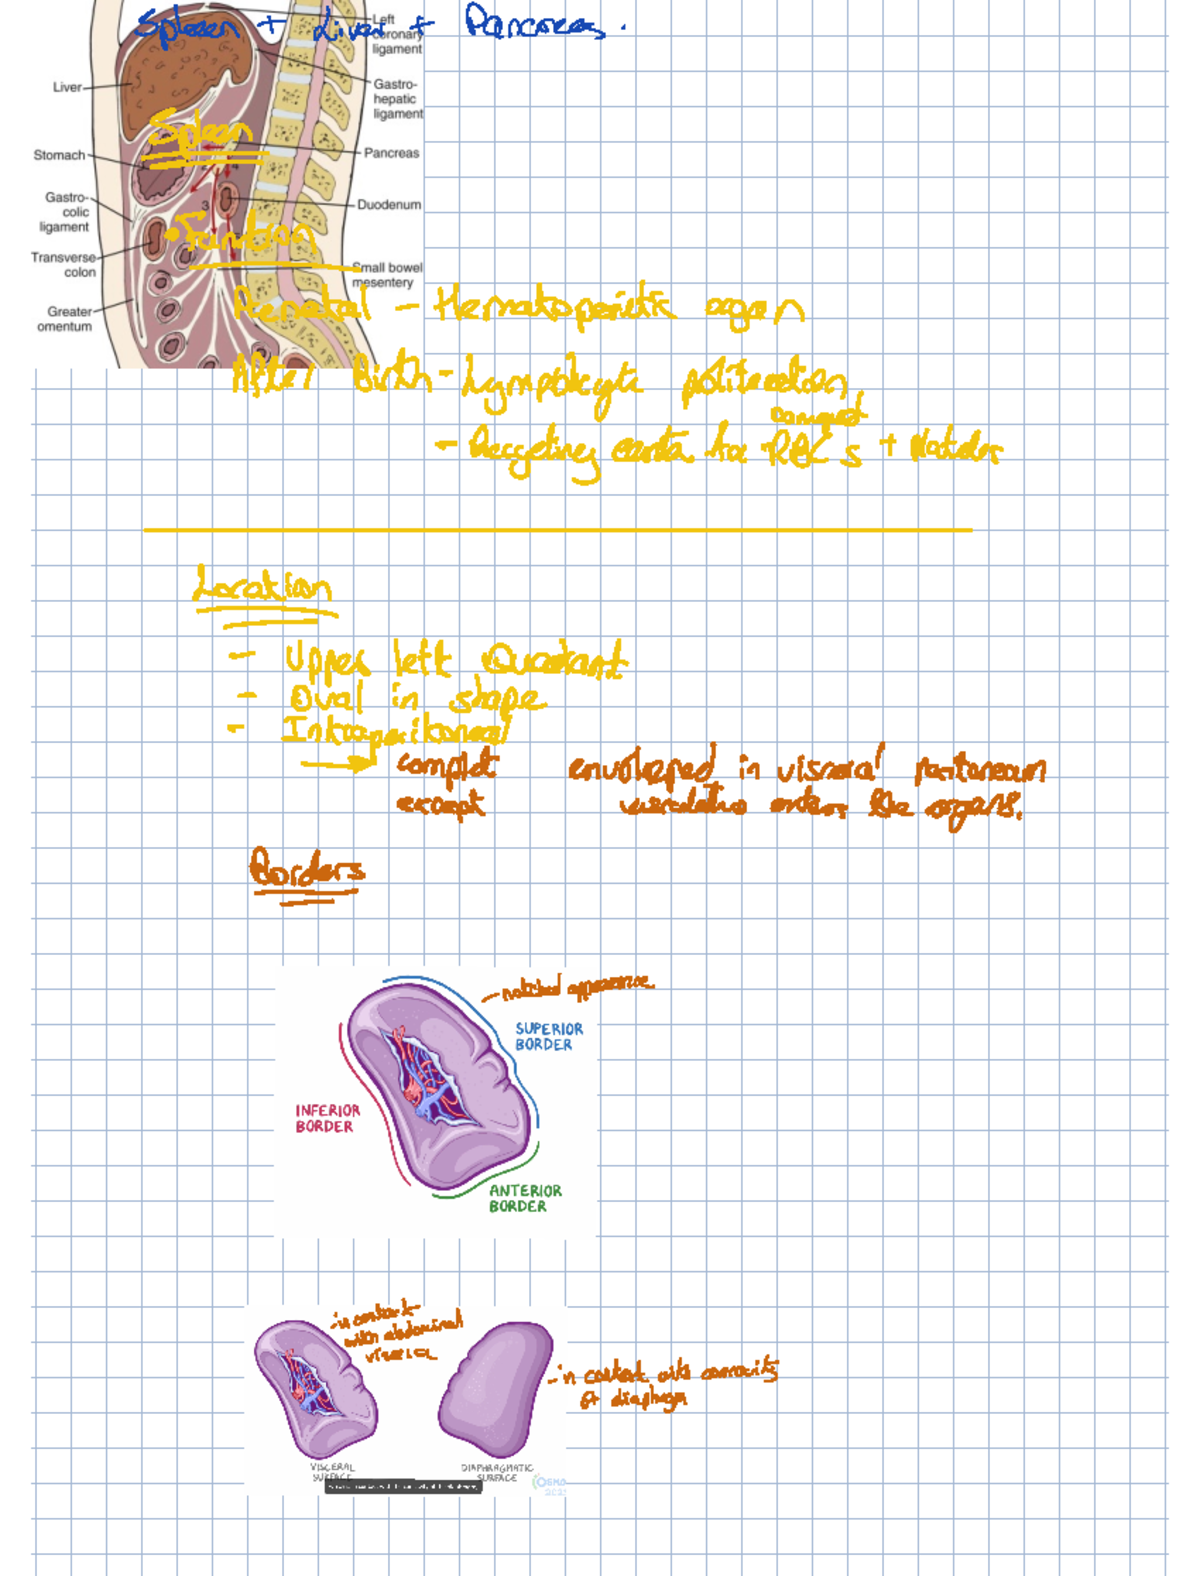 Spleen + Liver + Pancreas.
Left
coronary
ligament
Liver
Gastro-
hepatic
ligament
Spleen
Stomach
Pancreas
Gastro-
colic
ligament
3
Duodenum
• Function
Transverse
colon
Small bowel
mesentery
Greater
omentum
Prenatal - Hematopoeitic organ
After Birth - Lymphocyte
damaged
- Recycling for RBC's +
Location
- Upper left Quadrant
- Oval in shape
- Intraperitoneal
complet enveloped in visceral peritoneum
except enters the organs.
Borders
- notched appearance
SUPERIOR
BORDER
INFERIOR
BORDER
ANTERIOR
BORDER
- in contact
with abdominal
viscera
- in contact with concavity
of diaphragm
VISCERAL
SURFACE
DIAPHRAGMATIC
SURFACE